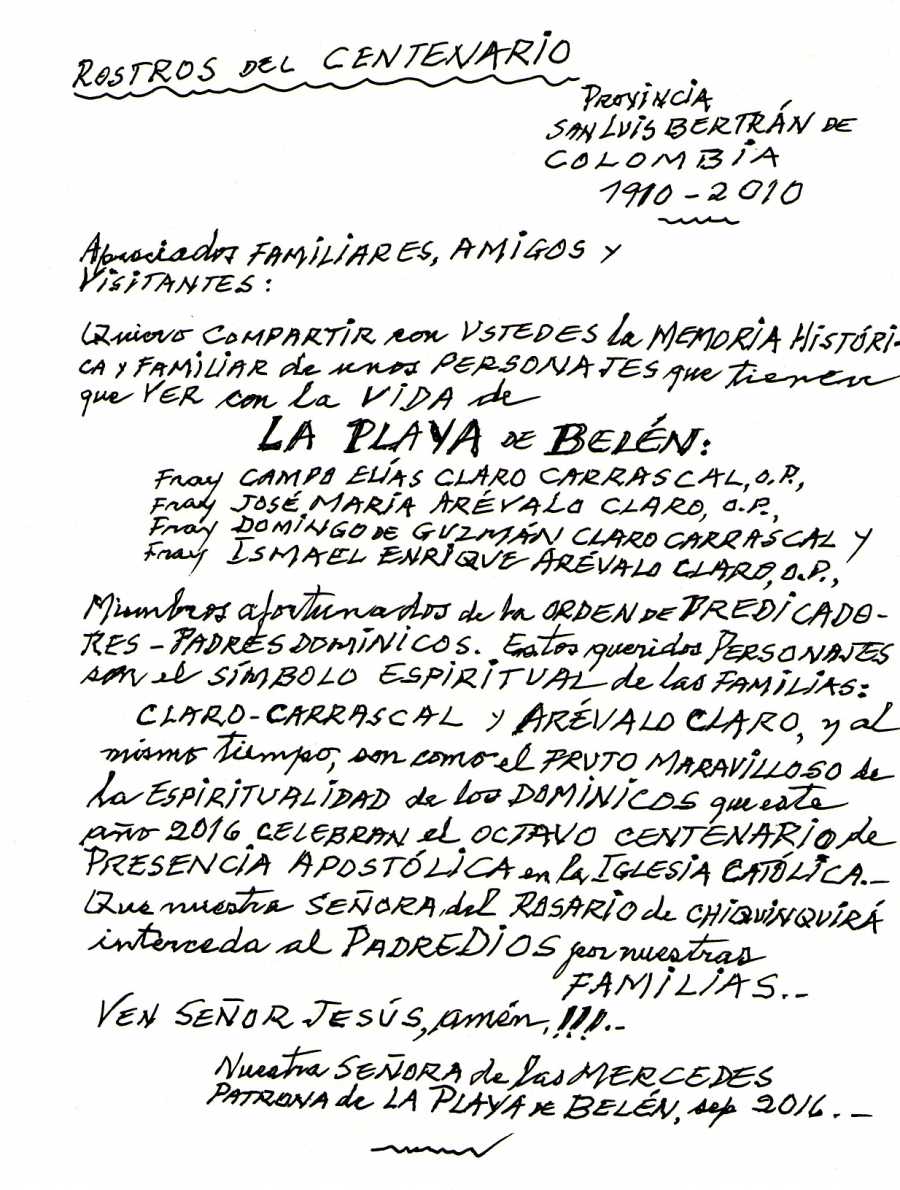 ROSTROS DEL CENTENARIO
PROVINCIA
SAN LUIS BERTRÁN DE
COLOMBIA
1910-2010
Apreciados FAMILIARES, AMIGOS Y
VISITANTES:
Quiero COMPARTIR con USTEDES la MEMORIA HISTÓRI-
CA Y FAMILIAR de unos PERSONAJES que tienen
que VER con la VIDA de
LA PLAYA DE BELÉN:
Fray CAMPO ELÍAS CLARO CARRASCAL, O.P.,
Fray JOSÉ MARÍA ARÉVALO CLARO, O.P.,
Fray DOMINGO DE GUZMÁN CLARO CARRASCAL Y
Fray ISMAEL ENRIQUE ARÉVALO CLARO, O.P.,
Miembros afortunados de la ORDEN DE PREDICADO-
RES - PADRES DOMINICOS. Estos queridos PERSONAJES
son el SÍMBOLO ESPIRITUAL de las FAMILIAS:
CLARO-CARRASCAL Y ARÉVALO CLARO, y al
mismo tiempo, son como el FRUTO MARAVILLOSO de
la ESPIRITUALIDAD de los DOMINICOS que este
año 2016 CELEBRAN el OCTAVO CENTENARIO de
PRESENCIA APOSTÓLICA en la IGLESIA CATÓLICA.-
Que nuestra SEÑORA del ROSARIO de CHIQUINQUIRÁ
interceda al PADRE DIOS por nuestras
FAMILIAS.-
VEN SEÑOR JESÚS, amén, !!!.-
Nuestra SEÑORA de las MERCEDES
PATRONA de LA PLAYA DE BELÉN, sep 2016.-